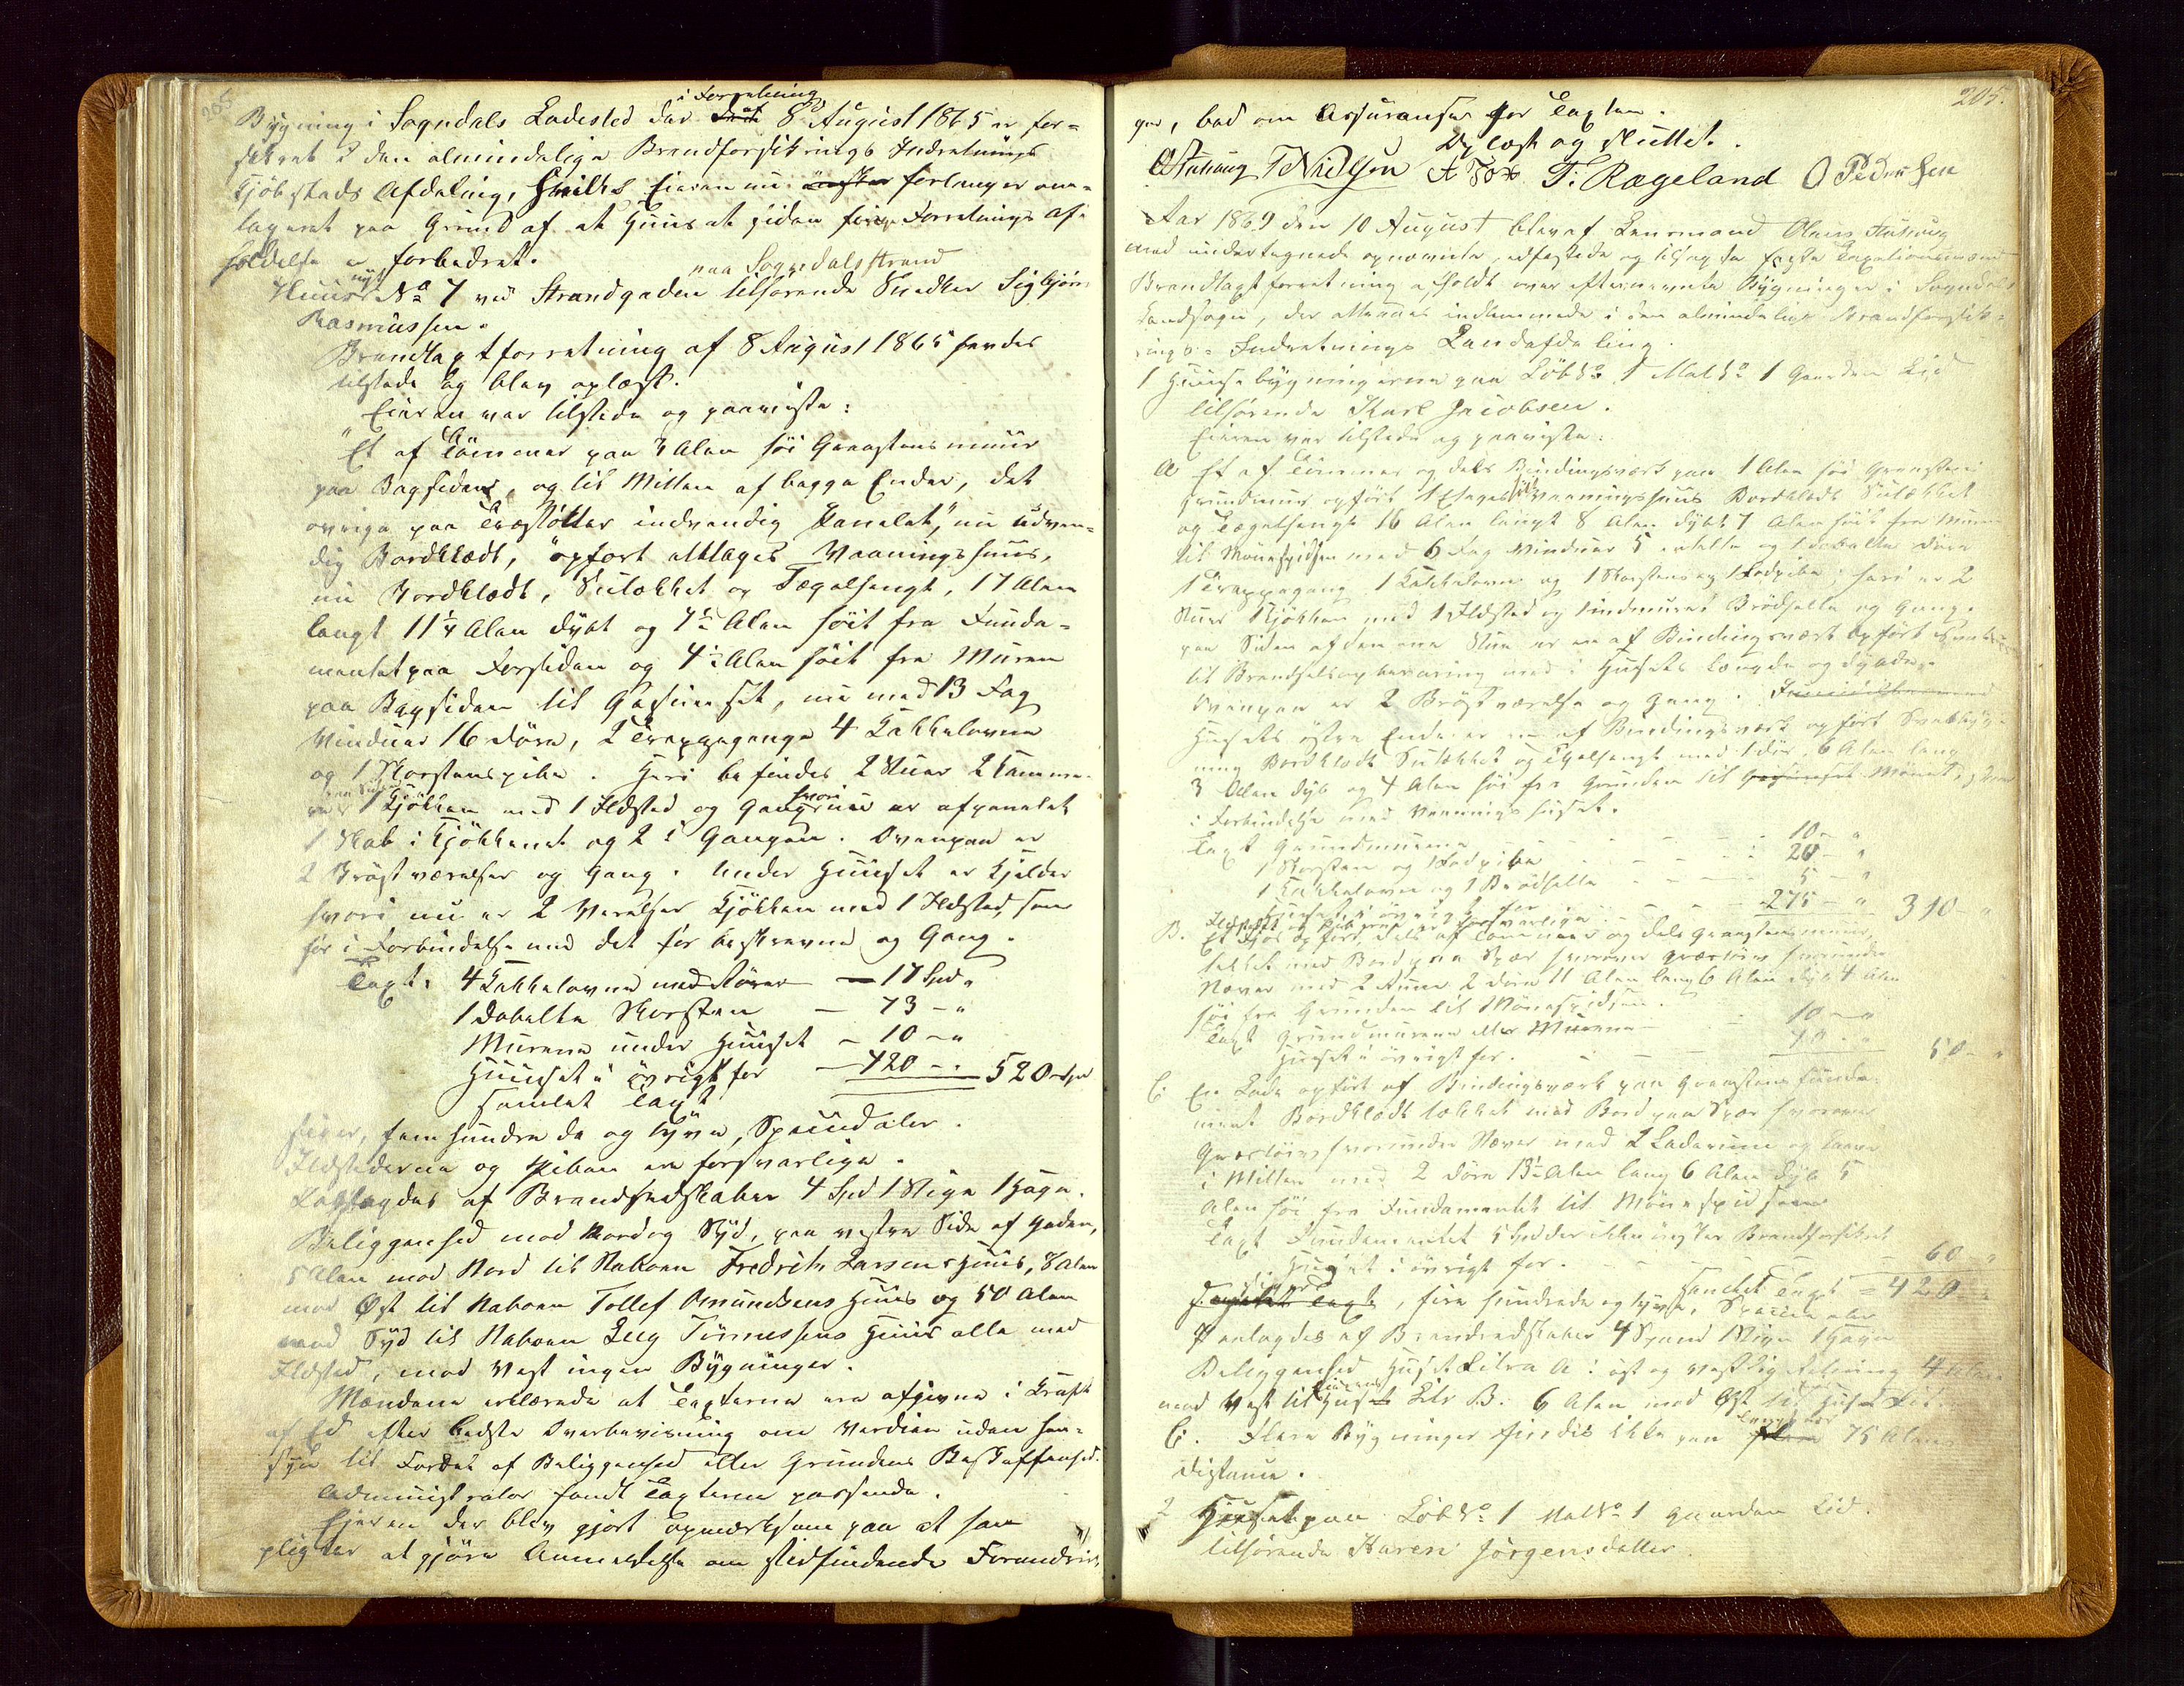 265
i Forretning
Bygning i Sogndals Ladested der af 8d August 1865 er for=
sikret i den almindelige Brandforsikrings Indretnings
Kjøbstads Afdeling, hvilket Eieren nu ønsker forlanger om=
taxeret paa Grund af at Huuset siden Forretnings Af=
holdelse er forbedret.
nyt paa Sogndalsstrand
Huus No 7 ved Strandgaden tilhørende Snedker Sigbjørn
Rasmussen.
Brandtaxtforretning af 8 August 1865 havdes
tilstede og blev oplæst.
Eieren var tilstede og paaviste:
"Et af Tømmer paa 3 Alen høi Graastensmuur
paa Bagsiden, og til Midten af begge Ender, det
øvrige paa Træstøtter indvendig Panelet," nu udven=
dig Bordklædt, "opført etetages Vaaningshuus,
nu Bordklædt, Sutækket og Tægelhængt, 17 Alen
langt 11¼ Alen dybt og 7½ Alen høit fra Funda=
mentet paa Forsiden og 4½ Alen høit fra Muren
paa Bagsiden til Gesimset, nu med 13 Fag
Vinduer 16 Døre, 2 Trappegange 4 Kakkelovne
og 1 Skorstenspibe. Heri befindes 2 Stuer 2 Kamme-
re 1 Kjøkken med 1 Ildsted og Gang hvori er afpanelet
1 Skab i Kjøkkenet og 2 i Gangen. Ovenpaa er
2 Brøstværelser og Gang. Under Huuset er Kjelder
hvori nu er 2 Værelser Kjøkken med 1 Ildsted, som
før i Forbindelse med det før beskrevne og Gang.
Taxt: 4 Kakkelovne med Rører — 17 Spd "
1 dobelte Skorsten — 73 — "
Murene under Huuset — 10 — "
Huuset i øvrigt for — 420 — " 520 Spd
samlet Taxt
siger, fem hundrede og tyve, Speciedaler.
Ildstederne og Piben ere forsvarlige.
Forlagdes af Brandredskaber 4 Spd 1 Stige 1 Hage.
Beliggenhed mod Nord og Syd, paa vestre Side af Gaden,
5 Alen mod Nord til Naboen Fredrik Larsens Huus, 8 Alen
mod Øst til Naboen Tollef Omundsens Huus og 50 Alen
mod Syd til Naboen Elleg Tønnessens Huus alle med
Ildsted, mod Vest ingen Bygninger.
Mændene erklærede at Taxterne ere afgivne i Kraft
af Ed efter bedste Overbeviisning om Værdien uden Hen=
syn til Fordel af Beliggenhed eller Grundens Beskaffenhed.
Administrator fandt Taxterne passende.
Eieren der blev gjort opmærksom paa at han
pligter at gjøre Anmeldelse om stedfindende Forandrin=
205.
ger, bad om Assurance for Taxten.
Oplæst og sluttet.
OStuhaug TNielsen A Fox T. Rægeland O Pedersen
Aar 1869 den 10 August blev af Lensmand Olaus Stuhaug
med undertegnede opnævnte, edfæstede og tilsagte faste Taxationsmænd
Brandtaxtforretning afholdt over efternævnte Bygninger i Sogndals
Landsogn, der attraaes indlemmede i den almindelige Brandforsik=
rings= Indretnings Landafdeling.
1 Huusebygningerne paa Løb No 1 Mat No 1 Gaarden Lid
tilhørende Karl Jacobsen.
Eieren var tilstede og paaviste:
A Et af Tømmer og dels Bindingsværk paa 1 Alen høi Graastens
grundmuur opført 1 Etages Vaaningshuus Bordklædt Sutækket
og Tægelhængt 16 Alen langt 8 Alen dybt 7 Alen høit fra Muren
til Mønespidsen med 6 Fag Vinduer 5 enkelte og 1 dobelte Døre
1 Trappegang 1 Kakkelovn og 1 Skorstens og 1 Fodpibe, heri er 2
Stuer Kjøkken med 1 Ildsted og 1 indmuret Brødhelle og Gang.
paa Siden af den ene Stue er en af Bindingsværk opført
til Brændselsopbevaring med i Husets Længde og Dybde.
Ovenpaa er 2 Brøstværelse og Gang.
Husets østre Ende er en af Bindingsværk opført Svalbyg=
ning Bordklædt Sutækket og Tegelhængt med 1 Dør, 6 Alen lang
3 Alen dyb og 4 Alen høi fra Grunden til Gesimset Mønet, staar
i Forbindelse med Vaaningshuset.
Taxt Grundmurene — 10 — "
1 Skorsten og 1 Fodpibe — 20 — "
1 Kakkelovn og 1 Brødhelle — 5 — "
Huuset i øvrigt for — 275 — " 310 — "
Ildstedet og Piberne er forsvarlige
B. Et Fjøs opført, dels af Tømmer og dels Graastensmuur,
tækket med Bord paa Spær hvorover Græstørv hvorunder
Næver med 2 Rum 2 Døre 11 Alen lang 6 Alen dyb 4 Alen
høi fra Grunden til Mønespidsen.
Taxt Grundmurene eller Murene — 10 — "
Huset i øvrigt for — 40 — " 50 — "
C. En Lade opført af Bindingsværk paa Graastens Funda=
ment Bordklædt tækket med Bord paa Spær hvorover
Græstørv hvorunder Næver med 2 Laderum og Laave
i Midten med 2 Døre 13½ Alen lang 6 Alen dyb 5
Alen høi fra Fundamentet til Mønespidsen
Taxt Fundamentet 5 Spd der ikke ønskes Brandforsikret
Huset i øvrigt for — 60 — "
samlet Taxt 420 — "
siger, fire hundrede og tyve, Speciedaler
Forlagdes af Brandredskaber 4 Spand 1 Stige 1 Hage
Beliggenhed Huset Litra A: øst og vestlig Retning 4 Alen
mod Vest til Eierens Huset Litr B: 6 Alen mod Øst til Huset Lit.
C. Flere Bygninger findes ikke paa 75 Alens
Distance.
2 Huset paa Løb No 1 Mat No 1 Gaarden Lid.
tilhørende Karen Jørgensdatter.